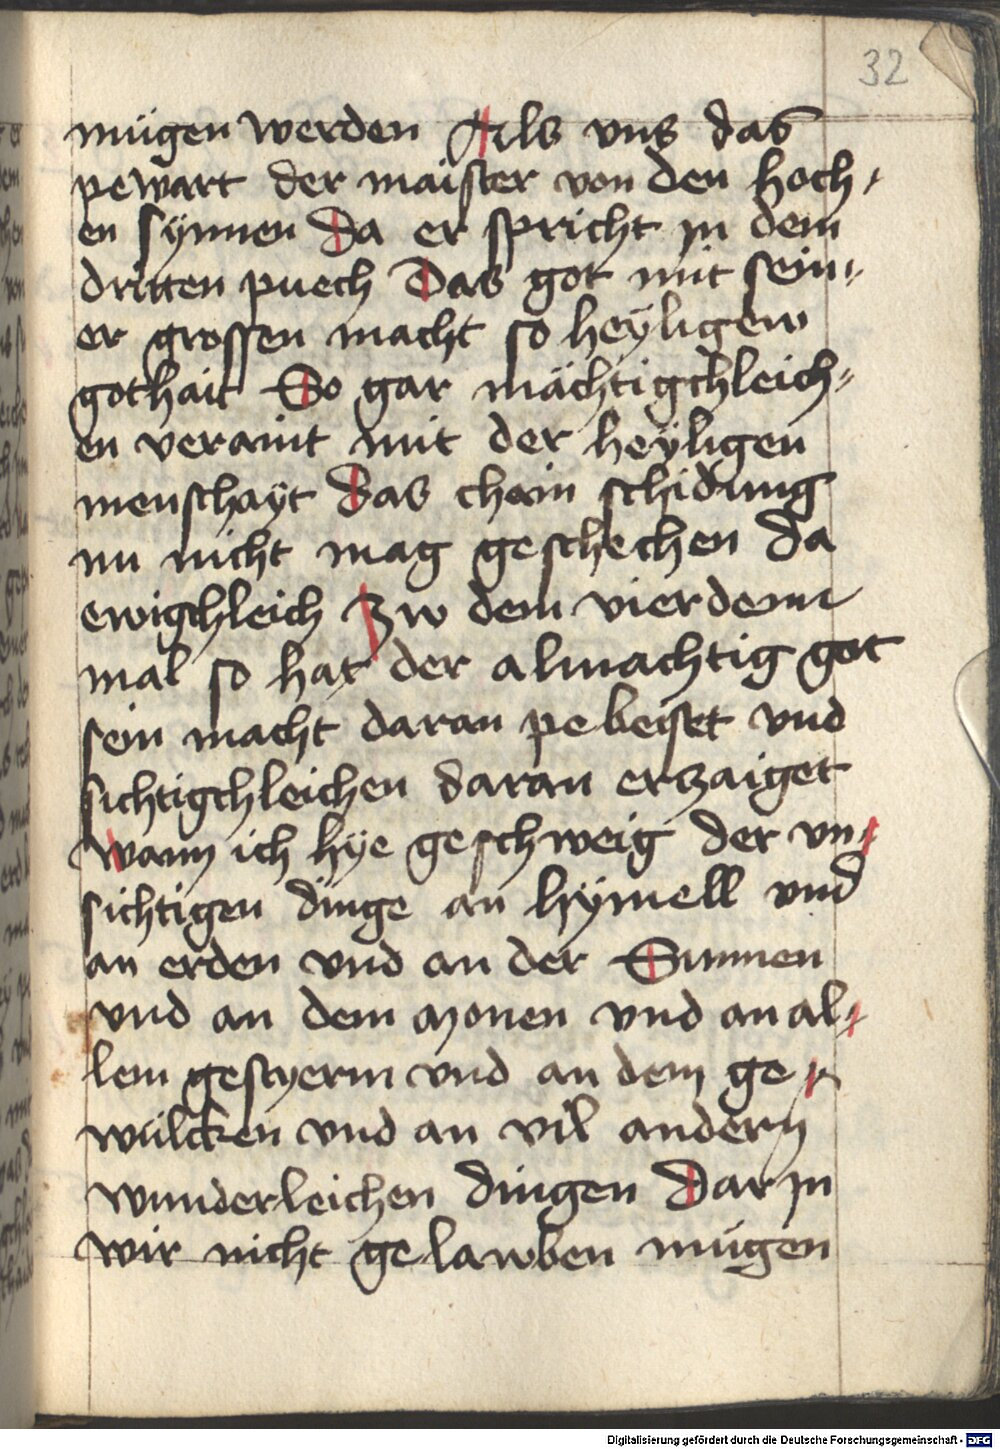 32
mügen werden Als vns das
pewart der maister von den hoch-
en synnen Da er spricht jn dem
dritten puech Das got mit sein-
er grossen macht so heÿligew
gothait So gar mächtigchleich-
en veraint mit der heÿligen
menschaÿt Das chain schidung
nu nicht mag geschechen da
ewigchleich Zw dem vierdenn
mal so hat der almachtig got
sein macht daran pebeiset vnd
sichtigchleichen daran erzaiget
Wann ich hye geschweig der vn-
sichtigen dinge an hÿmell vnd
an erden vnd an der Sunnen
vnd an dem monen vnd an al-
lem gestyerm vnd an dem ge-
wülcken vnd an vil andern
wunderleichen dingen Dar jn
wir nicht gelawben mügen
Digitalisierung gefördert durch die Deutsche Forschungsgemeinschaft - DFG